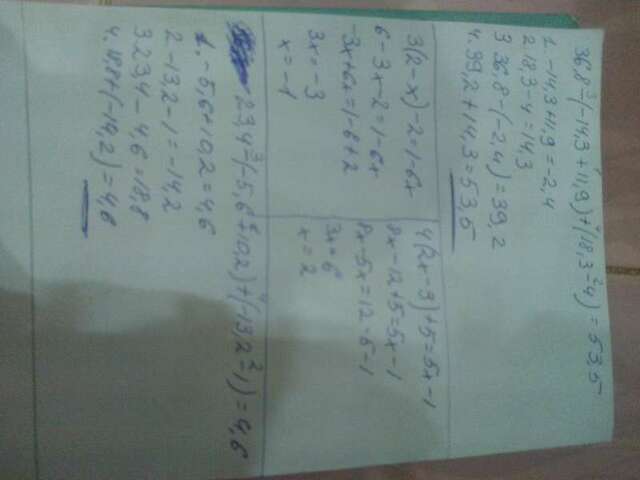 36,8-(-14,3+11,9)+(18,3-4)=53,5
1. -14,3+11,9=-2,4
2. 18,3-4=14,3
3. 36,8-(-2,4)=39,2
4. 39,2+14,3=53,5
3(2-x)-2=1-6x
6-3x-2=1-6x
-3x+6x=1-6+2
3x=-3
x=-1
4(2x-3)+5=5x-1
8x-12+5=5x-1
8x-5x=12-5-1
3x=6
x=2
23,4-(-5,6+10,2)+(-13,2-1)=4,6
1. -5,6+10,2=4,6
2. -13,2-1=-14,2
3. 23,4-4,6=18,8
4. 18,8+(-14,2)=4,6